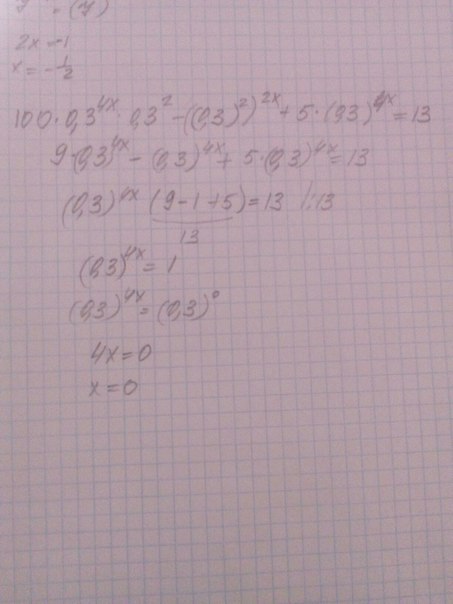 2x=-1
x=-1/2
100·0,3^4x·0,3^2-((0,3)^2)^2x+5·(0,3)^4x=13
9·(0,3)^4x-(0,3)^4x+5·(0,3)^4x=13
(0,3)^4x (9-1+5)=13 |:13
13
(0,3)^4x=1
(0,3)^4x=(0,3)^0
4x=0
x=0